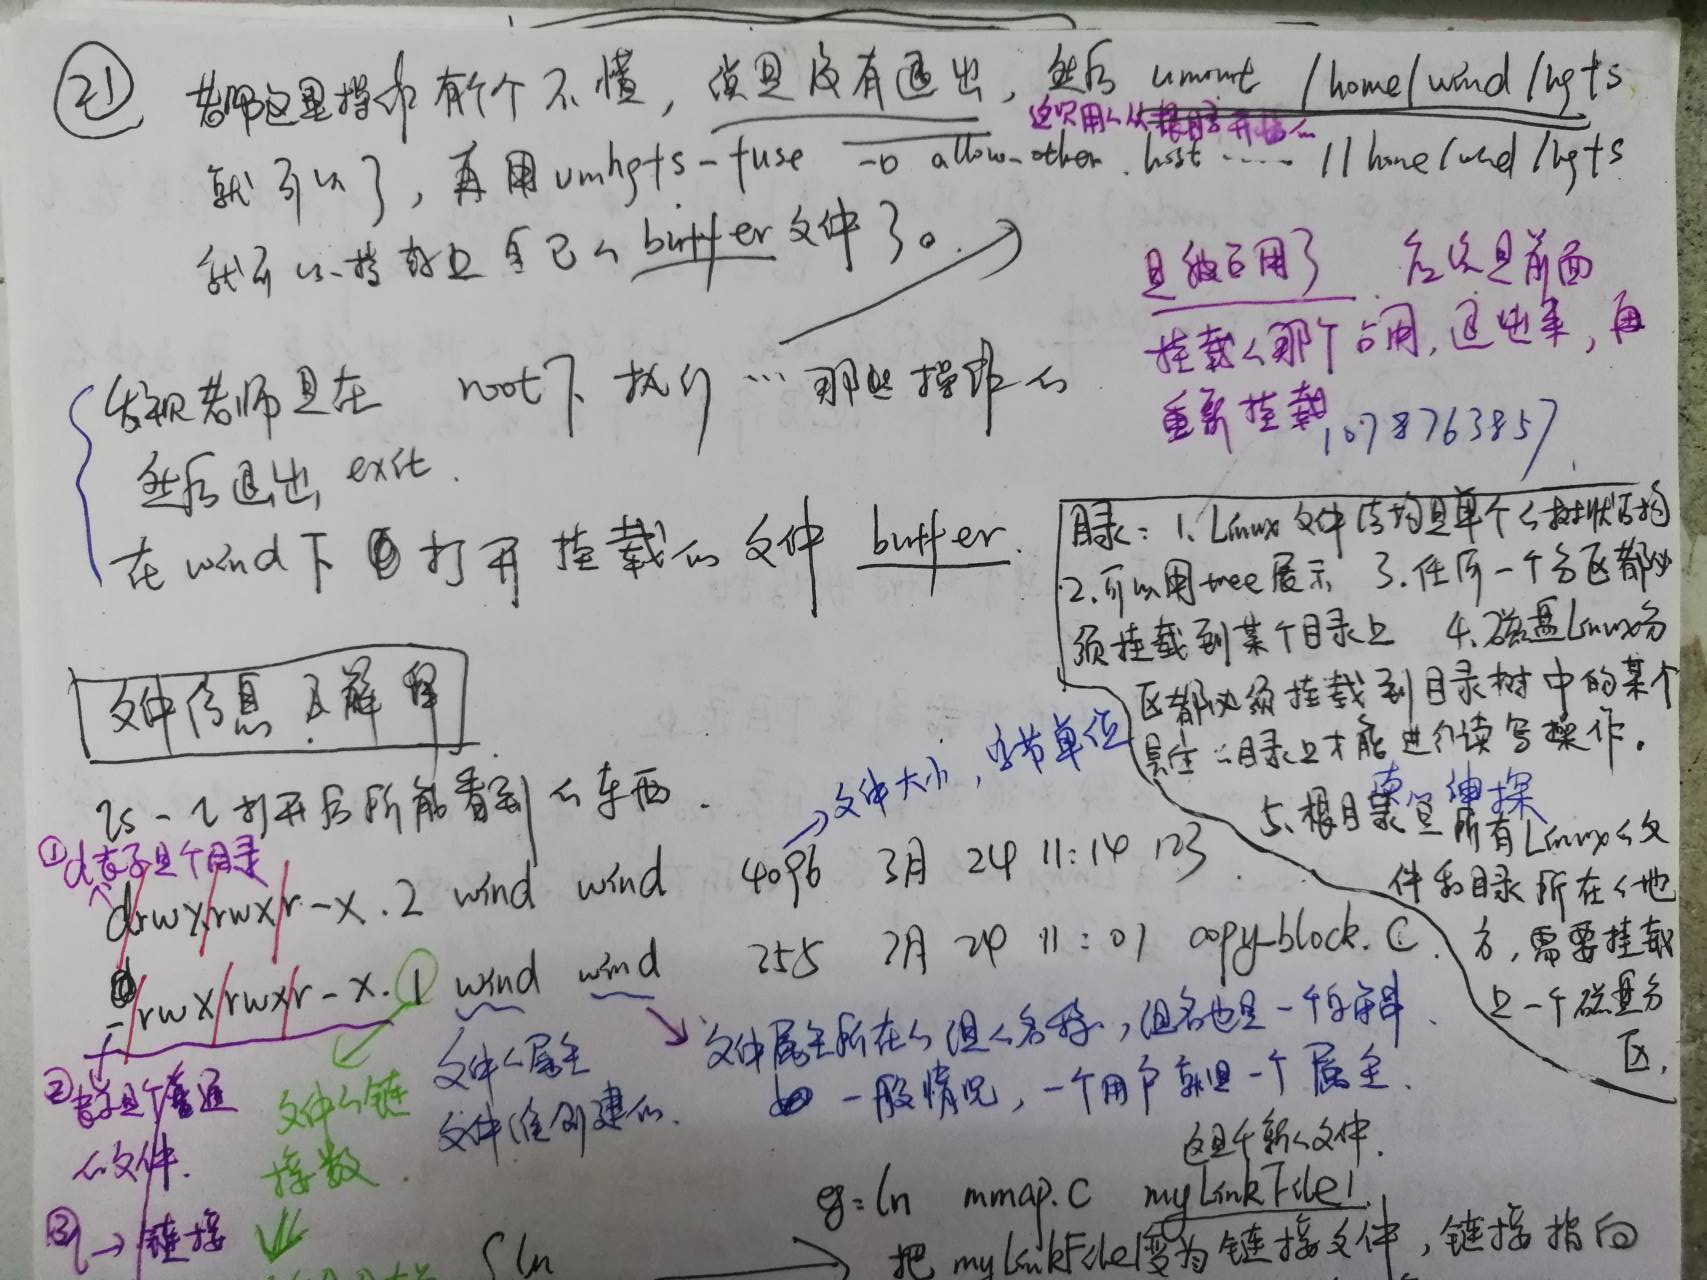 21
老师这里操作有个不懂，但是没有退出，然后 umount /home/wind/hgfs
这次用的从根目录开始的
就可以了，再用vmhgfs-fuse -o allow-other .host ······ //home/wind/hgfs
就可以挂载上自己的buffer文件了。
是被占用了 应该是前面
挂载的那个占用，退出来，再
重新挂载
1078763857
发现老师是在 root下执行…那些操作的
然后退出 exit.
在wind下 打开挂载的文件 buffer.
目录：1. Linux文件结构是单个的树状结构
2.可以用tree展示 3.任何一个分区都必
须挂载到某个目录上 4.磁盘Linux分
区都必须挂载到目录树中的某个
具体的目录上才能进行读写操作.
5.根目录是所有Linux的文
件和目录所在的地
方,需要挂载
上一个磁盘分
区.
文件信息及解释
ls -l 打开后所能看到的东西.
→文件大小,字节单位
①d表示是个目录
drwx/rwx/r-x.2 wind wind 4096 3月 24 11:14 123
-/rwx/rwx/r-x.1 wind wind 255 3月 24 11:01 copy-block.C
②表示是个普通
的文件.
文件的链
接数.
文件的属主
文件谁创建的.
文件属主所在的组的名称，组名也是一个
一般情况，一个用户就是一个属主.
这是个新的文件.
eg: ln mmap.C myLinkFile1
③l→链接
ln → 把 myLinkFile1变为链接文件，链接指向